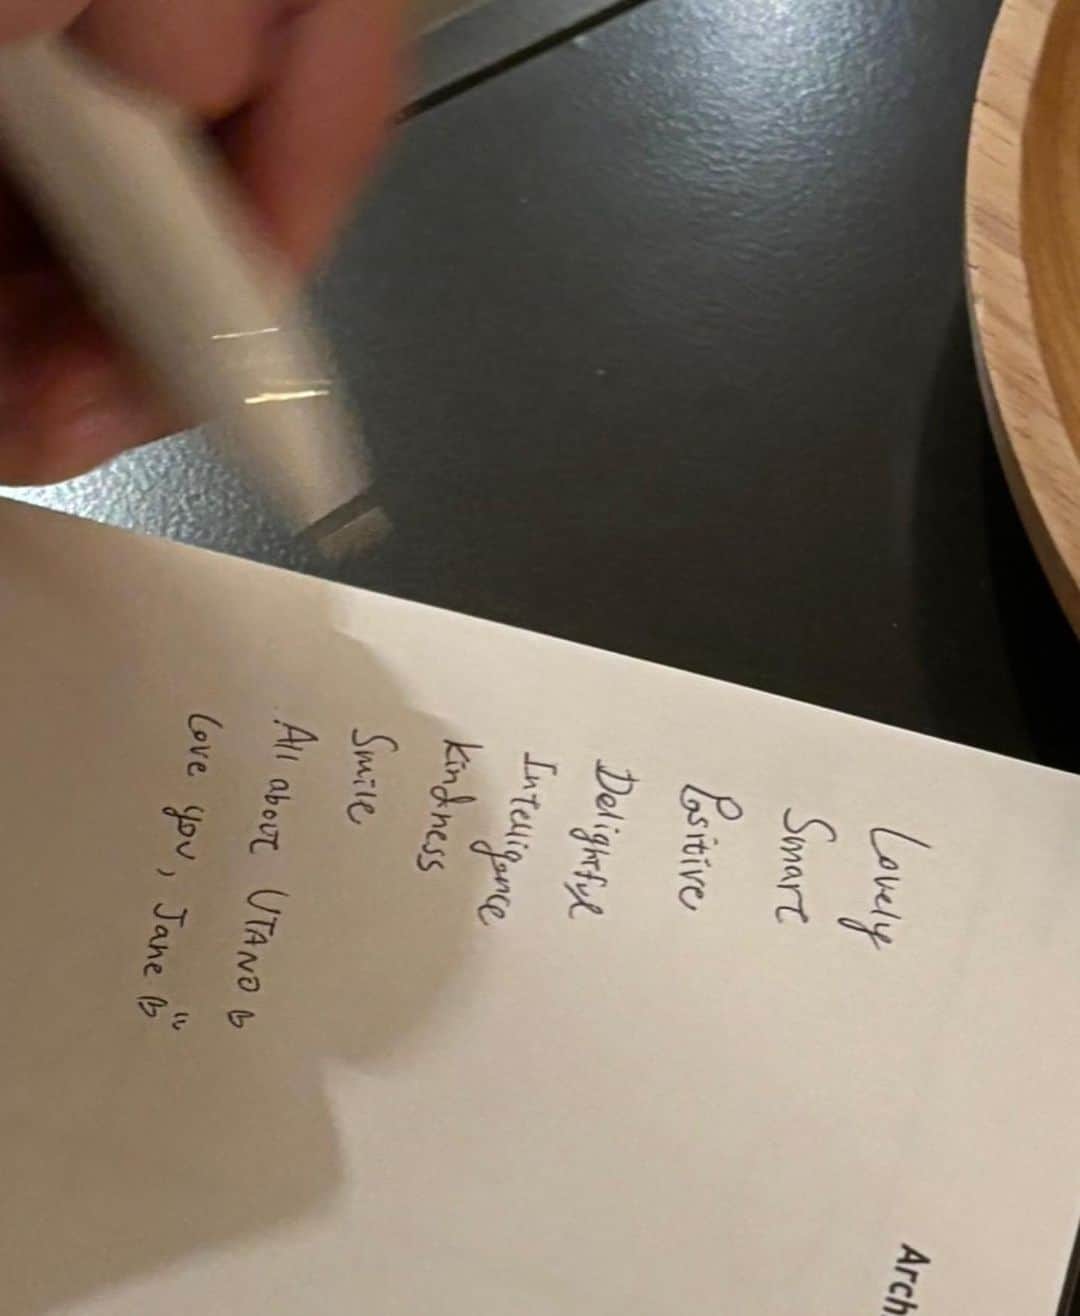 Lovely
Smart
Positive
Delightful
Intelligence
kindness
Smile
All about UTANO
Love you, Jane
Arch